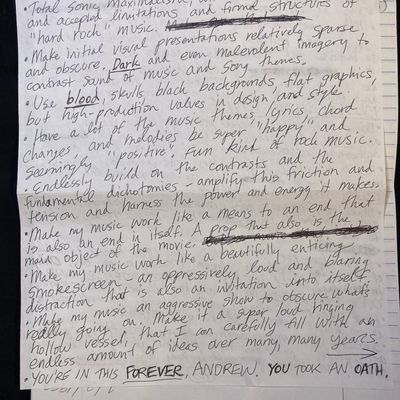 • Total sonic maximalism,
and accepted limitations and formal structures of
"hard rock" music.
• Make initial visual presentations relatively sparse
and obscure. Dark and even malevolent imagery to
contrast sound of music and song themes.
• Use blood, skulls black backgrounds, flat graphics,
but high-production values in design and style.
• Have a lot of the music themes, lyrics, chord
changes and melodies be super "happy" and
seemingly "positive". Fun kind of rock music.
• Endlessly build on the contrasts and the
fundamental dichotomies - amplify this friction and
tension and harness the power and energy it makes.
• Make my music work like a means to an end that
is also an end in itself. A prop that also is the
main object of the movie.
• Make my music work like a beautifully enticing
smokescreen - an oppressively loud and blaring
distraction that is also an invitation unto itself.
• Make my music an aggressive show to obscure what's
really going on. Make it a super loud ringing
hollow vessel, that I can carefully fill with an
endless amount of ideas over many, many years.
• YOU'RE IN THIS FOREVER, ANDREW. YOU TOOK AN OATH.